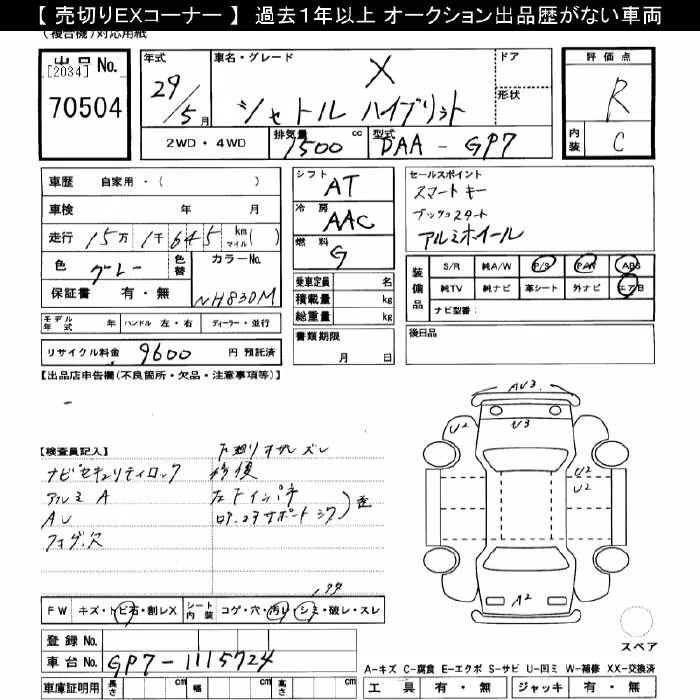 【 売切りEXコーナー 】 過去1年以上 オークション出品歴がない車両
(複合機)対応用紙
出品 No.
[2034]
70504
年式 29/5月
車名・グレード X
シャトル ハイブリット
ドア
形状
2WD・4WD
排気量 1500 cc
型式 DAA-GP7
評価点 R
内装 C
車歴 自家用・( )
車検 年 月
走行 15万1千645 km マイル( )
色 グレー
色替
カラーNo. NH830M
保証書 有・無
シフト AT
冷房 AAC
燃料 G
乗車定員 名
積載量 kg
総重量 kg
書類期限
月 日
セールスポイント
スマートキー
プッシュスタート
アルミホイール
装備品
S/R 純A/W P/S P/W ABS
純TV 純ナビ 革シート 外ナビ エアB
ナビ型番:
後日品
モデル年式 年 ハンドル 左・右 ディーラー・並行
リサイクル料金 9600 円 預託済
【出品店申告欄(不良箇所・欠品・注意事項等)】
-
【検査員記入】
ナビセキュリティロック
アルミ A
AU
フォグ欠
修復
左下インパネ
コアサポート
歪
AU3
U3
U2
U2
U2
A2
FW キズ・トビ石・割レX
シート内装 コゲ・穴・汚レ・シミ・破レ・スレ
スペア
登録 No.
車台 No. GP7-1115724
車庫証明用 長さ cm 幅 cm 高さ cm
A-キズ C-腐食 E-エクボ S-サビ U-凹ミ W-補修 XX-交換済
工具 有・無 ジャッキ 有・無